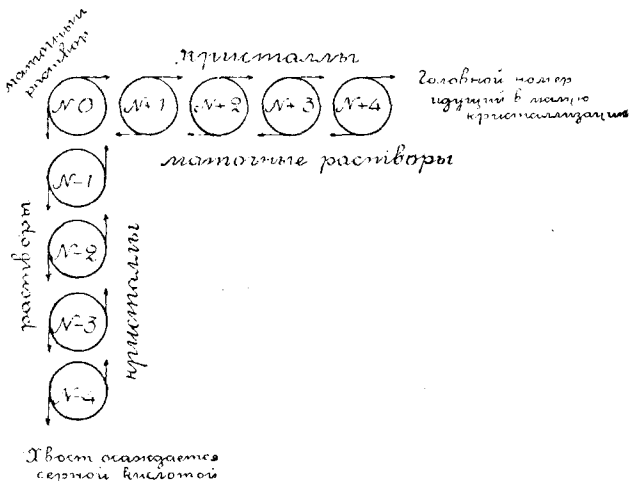 маточный
раствор
кристаллы
Головной номер
идущий в малую
кристаллизацию
N0 N+1 N+2 N+3 N+4
маточные растворы
N-1
N-2
растворы
кристаллы
N-3
N-4
Хвост осаждается
серной кислотой